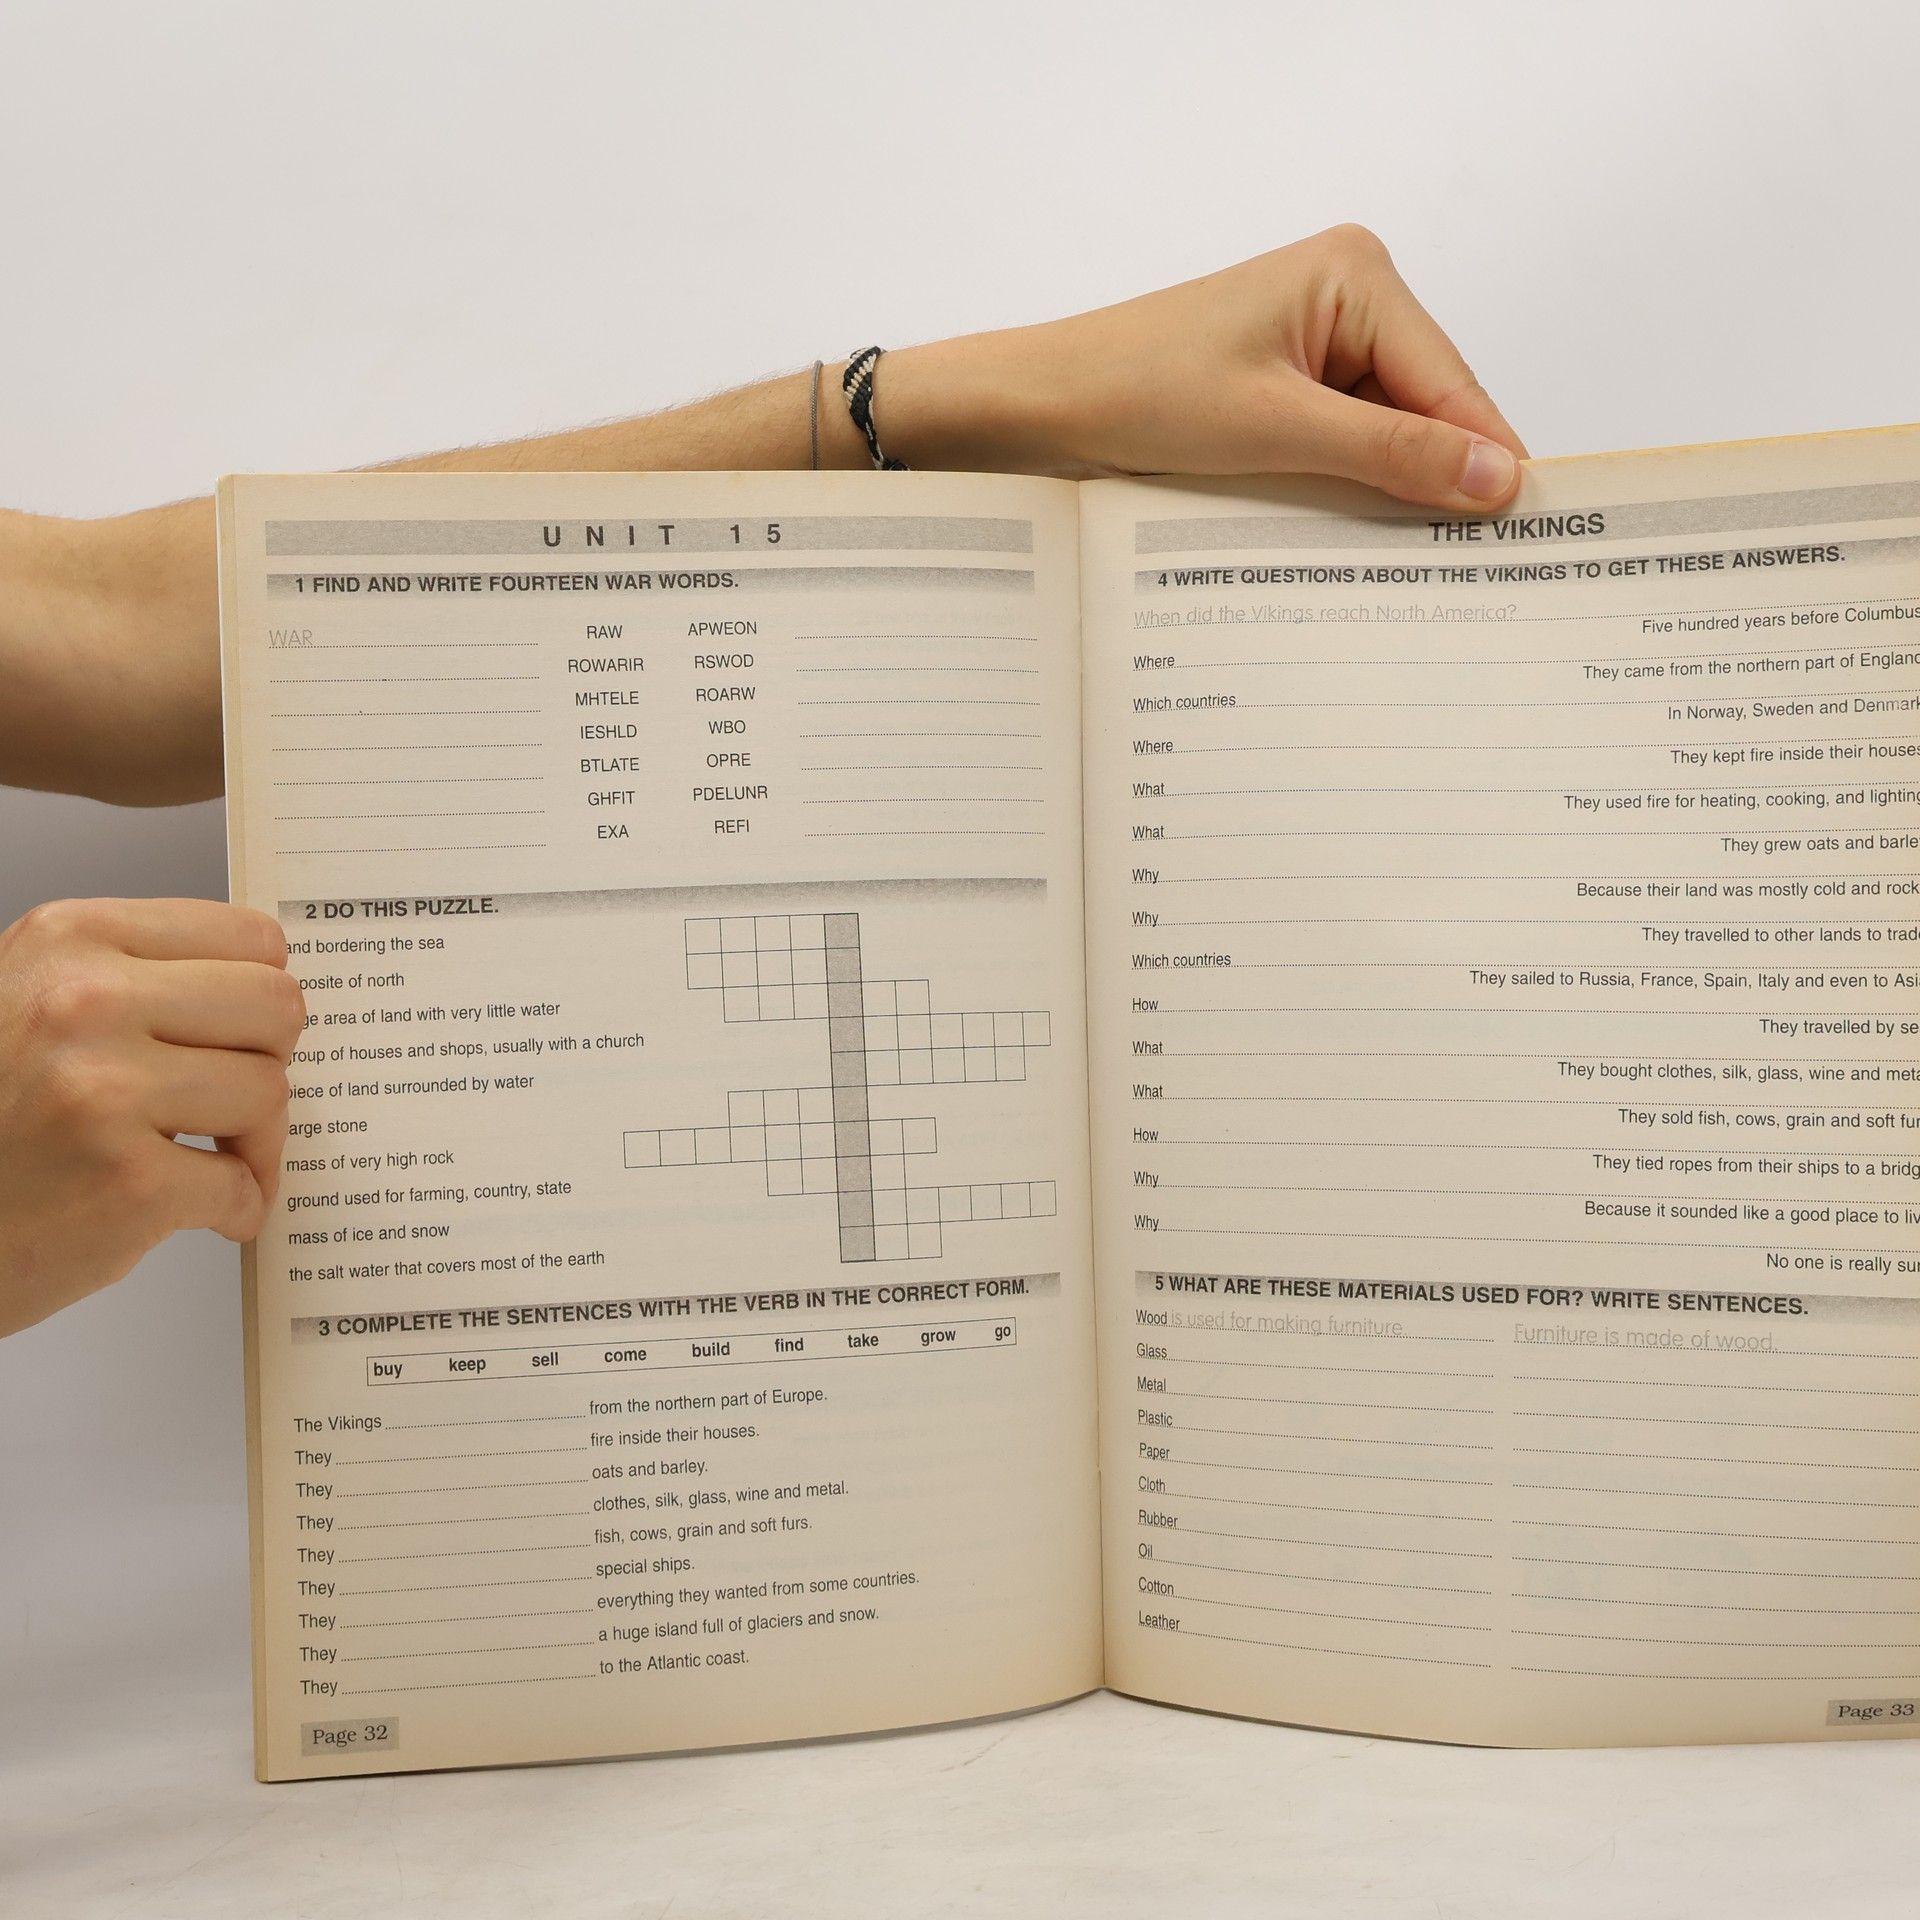 UNIT 15
1 FIND AND WRITE FOURTEEN WAR WORDS.
WAR RAW APWEON
ROWARIR RSWOD
MHTELE ROARW
IESHLD WBO
BTLATE OPRE
GHFIT PDELUNR
EXA REFI
2 DO THIS PUZZLE.
bordering the sea
of north
area of land with very little water
of houses and shops, usually with a church
of land surrounded by water
stone
mass of very high rock
ground used for farming, country, state
mass of ice and snow
the salt water that covers most of the earth
3 COMPLETE THE SENTENCES WITH THE VERB IN THE CORRECT FORM.
buy keep sell come build find take grow go
The Vikings from the northern part of Europe.
They fire inside their houses.
They oats and barley.
They clothes, silk, glass, wine and metal.
They fish, cows, grain and soft furs.
They special ships.
They everything they wanted from some countries.
They a huge island full of glaciers and snow.
They to the Atlantic coast.
Page 32
THE VIKINGS
4 WRITE QUESTIONS ABOUT THE VIKINGS TO GET THESE ANSWERS.
When did the Vikings reach North America?
Five hundred years before Columbus
Where
They came from the northern part of England
Which countries
In Norway, Sweden and Denmark
Where
They kept fire inside their houses
What
They used fire for heating, cooking, and lighting
What
They grew oats and
Why
Because their land was mostly cold and
Why
They travelled to other lands to
Which countries
They sailed to Russia, France, Spain, Italy and even to
How
They travelled by
What
They bought clothes, silk, glass, wine and
What
They sold fish, cows, grain and soft
How
They tied ropes from their ships to a
Why
Because it sounded like a good place to
Why
No one is really
5 WHAT ARE THESE MATERIALS USED FOR? WRITE SENTENCES.
Wood is used for making furniture. Furniture is made of wood.
Glass
Metal
Plastic
Paper
Cloth
Rubber
Oil
Cotton
Leather
Page 33